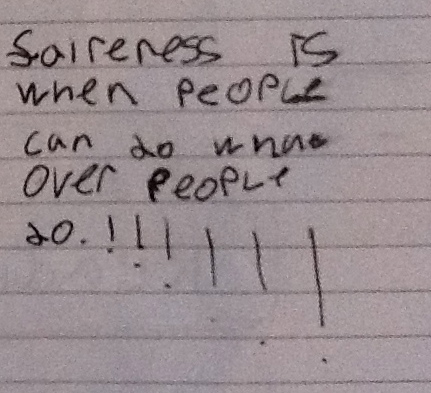 faireness is
when people
can do what
over people
do.!!!!!!